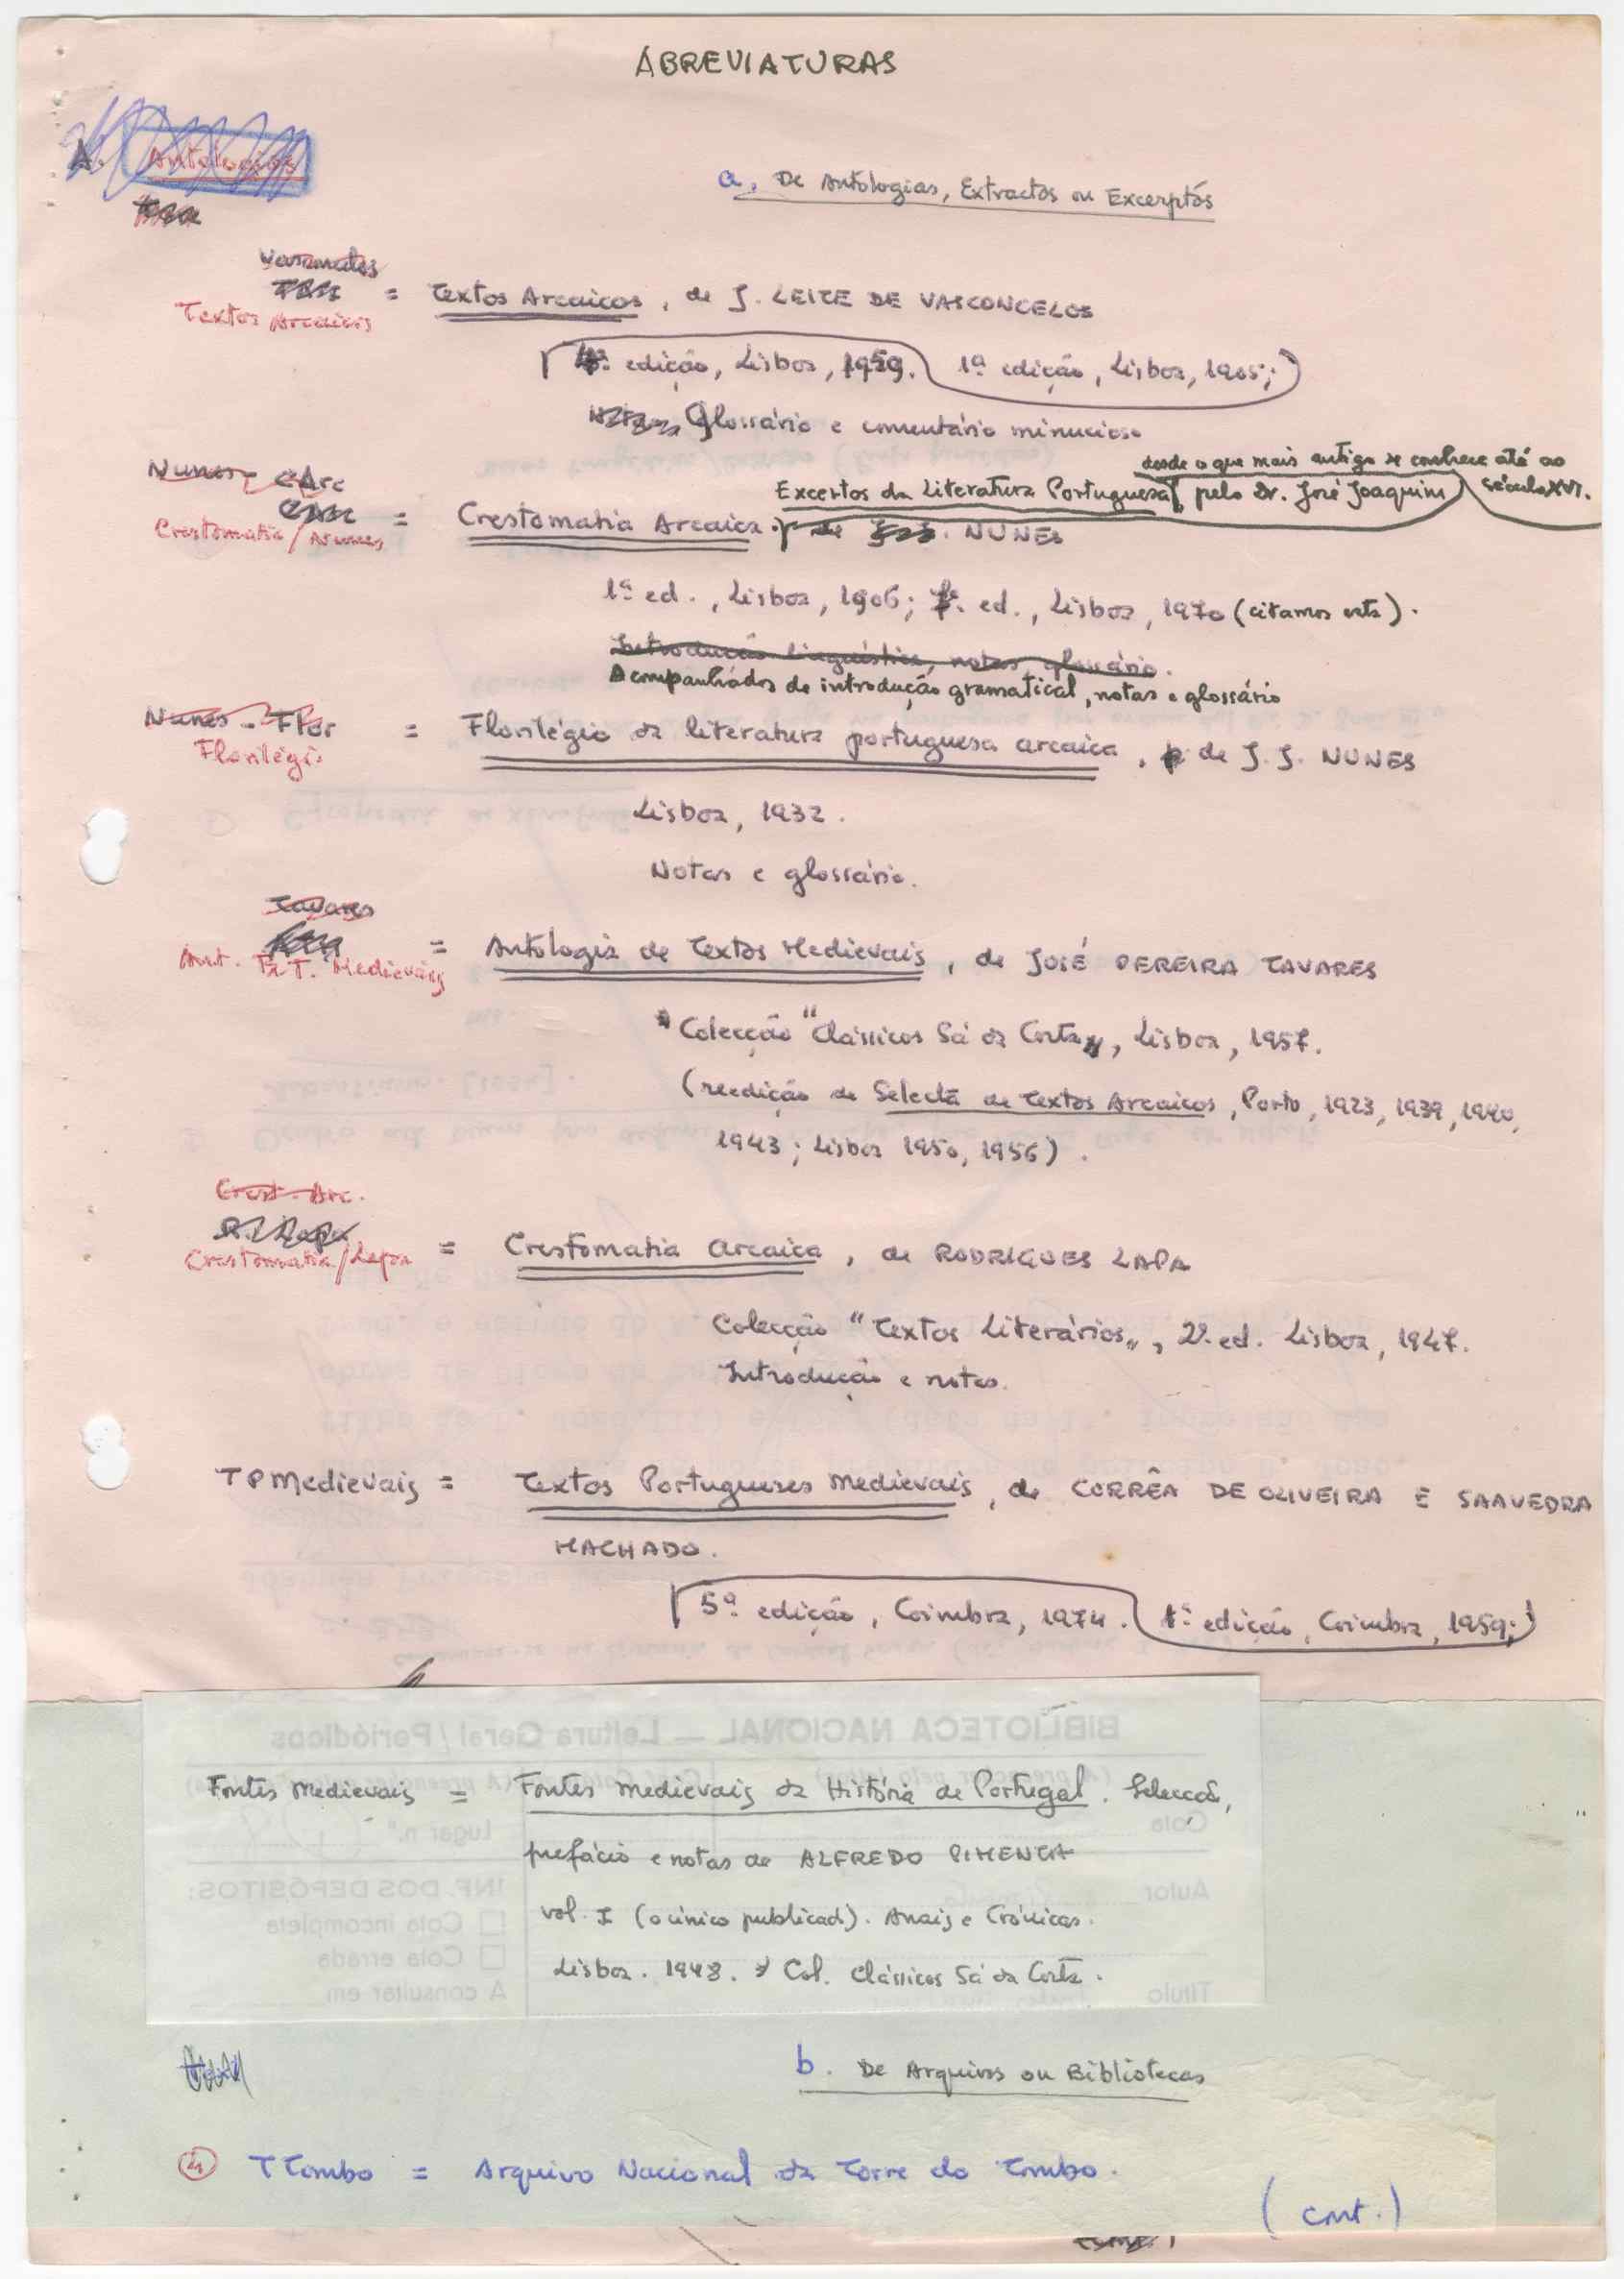 ABREVIATURAS
A. Antologias
a. De Antologias, Extractos ou Excerptos
Textos Arcaicos = Textos Arcaicos, de J. LEITE DE VASCONCELOS
4ª edição, Lisboa, 1959. 1ª edição, Lisboa, 1905;
Glossário e comentário minucioso
desde o que mais antigo se conhece até ao
Nunes - CArc Excertos da Literatura Portuguesa, pelo Dr. José Joaquim século XVI.
Crestomatia/Nunes = Crestomatia Arcaica. de J.J. NUNES
1ª ed., Lisboa, 1906; 7ª. ed., Lisboa, 1970 (citamos esta).
Introdução linguística, notas, glossário.
Acompanhados de introdução gramatical, notas e glossário
Nunes - Flor = Florilégio da literatura portuguesa arcaica, de J. J. NUNES
Florilégio
Lisboa, 1932.
Notas e glossário.
Tavares
Ant. TxT. Medievais = Antologia de Textos Medievais, de JOSÉ PEREIRA TAVARES
Colecção "Clássicos Sá da Costa", Lisboa, 1957.
(reedição de Selecta de Textos Arcaicos, Porto, 1923, 1939, 1940,
1943; Lisboa 1950, 1956).
Crest. Arc.
Crestomatia/Lapa = Crestomatia arcaica, de RODRIGUES LAPA
Colecção "Textos Literários", 2ª. ed. Lisboa, 1947.
Introdução e notas.
TPMedievais = Textos Portugueses Medievais, de CORRÊA DE OLIVEIRA E SAAVEDRA
MACHADO.
5ª edição, Coimbra, 1974. 1ª edição, Coimbra, 1959;
Fontes Medievais = Fontes Medievais da História de Portugal. Selecção,
prefácio e notas de ALFREDO PIMENTA
vol. I (o único publicado). Anais e Crónicas.
Lisboa. 1948. Col. Clássicos Sá da Costa.
b. De Arquivos ou Bibliotecas
TTombo = Arquivo Nacional da Torre do Tombo.
(cont.)